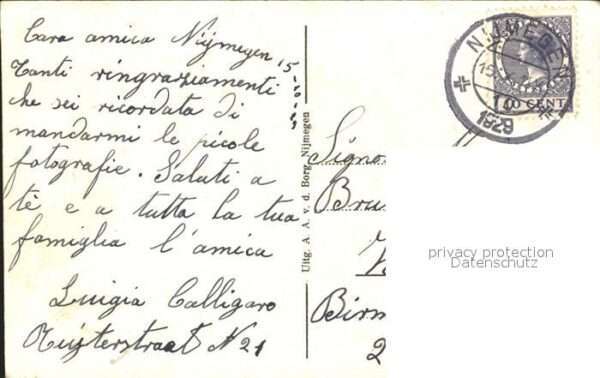 Cara amica Nijmegen 15-10-29
Tanti ringraziamenti
che sei ricordata di
mandarmi le picole
fotografie. Saluti a
tè e a tutta la tua
famiglia l'amica
Luigia Calligaro
Ruyterstraat N 21
Uitg. A. A. v. d. Borg, Nijmegen
NIJMEGEN
1929
10 CENT
Signo
Bru
Birm
2
privacy protection
Datenschutz